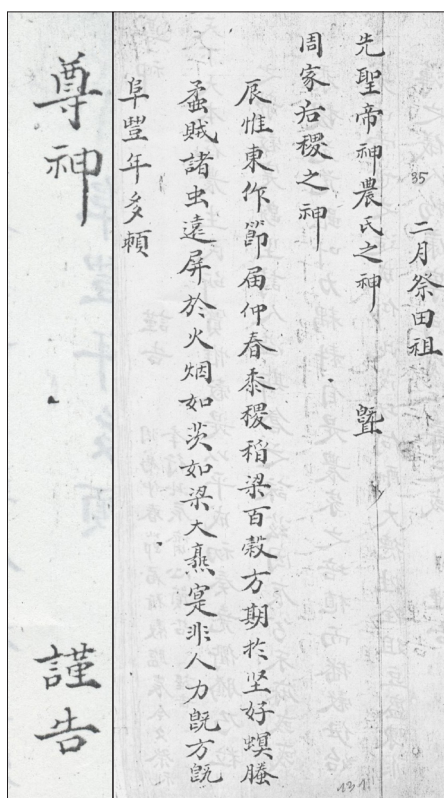 35 二月祭田祖
先聖帝神農氏之神 曁
周家后稷之神
辰惟東作節届仲春黍稷稻梁百穀方期於坚好螟螣
蟊賊諸虫遠屏於火烟如茨如梁大熹寔非人力旣方旣
阜豐年多頼
尊神 謹告
131